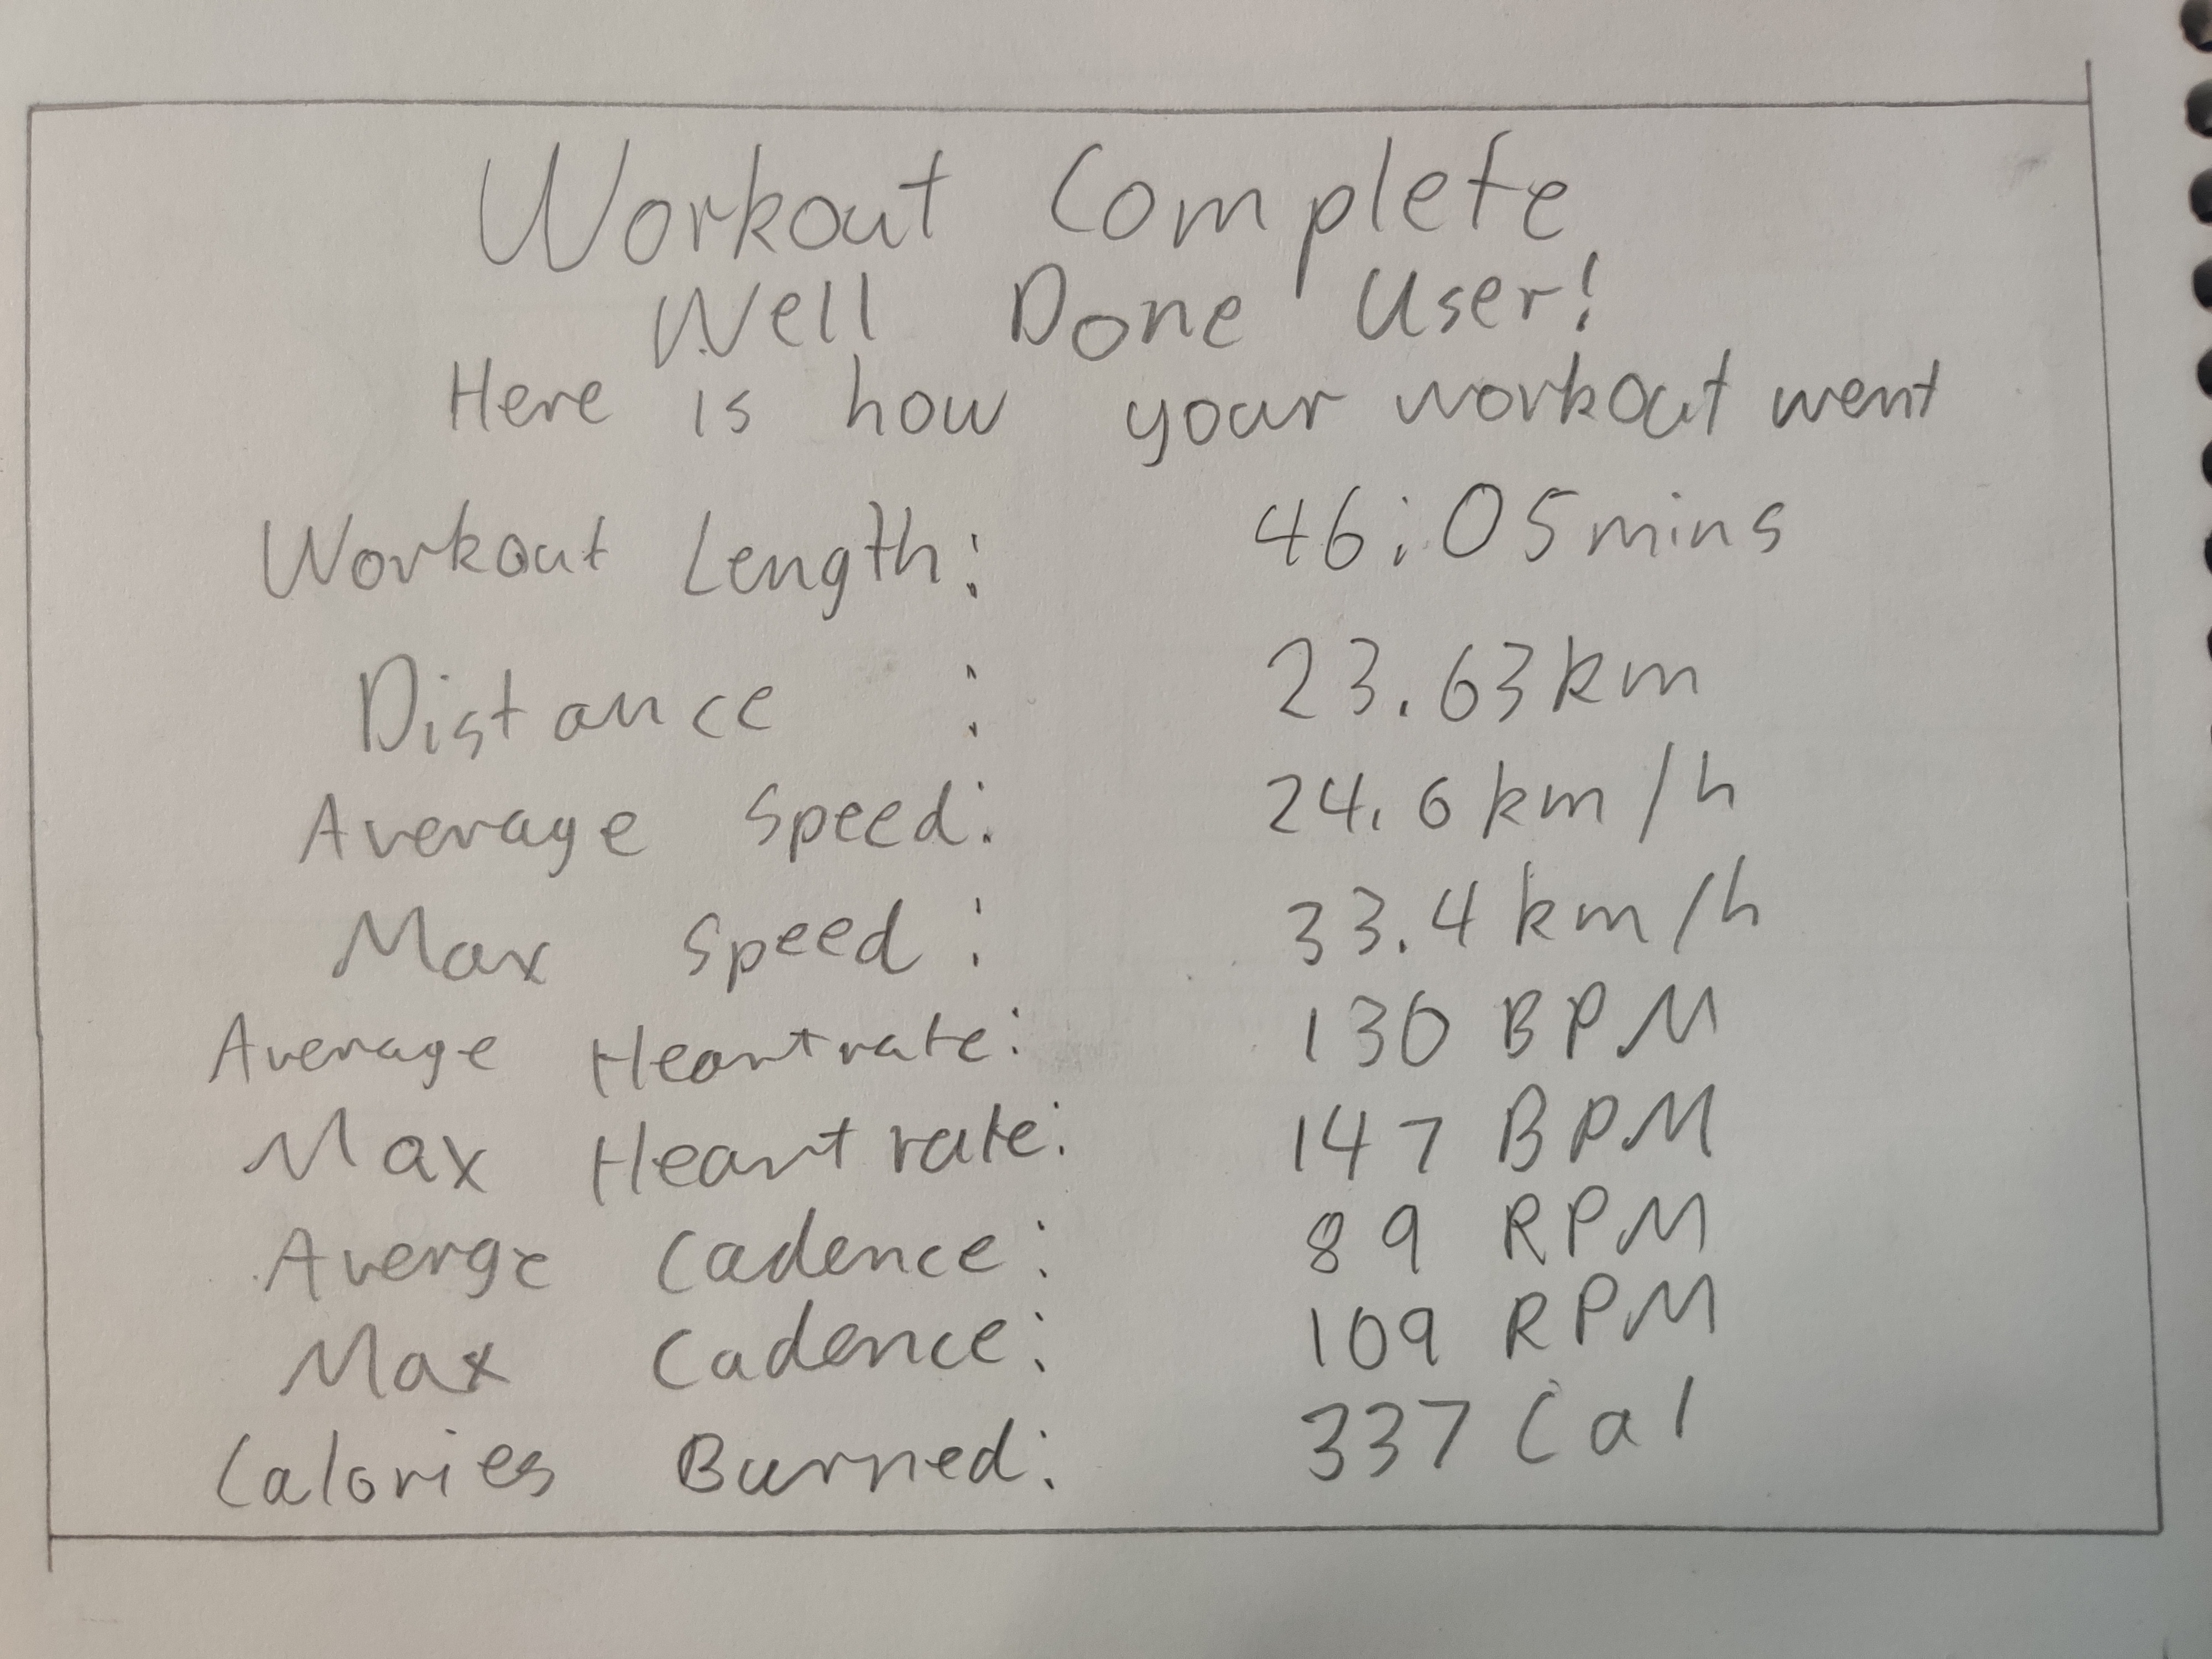 Workout Complete
Well Done User!
Here is how your workout went
Workout Length: 46:05mins
Distance : 23.63km
Average Speed: 24.6km/h
Max Speed: 33.4km/h
Average Heartrate: 130 BPM
Max Heartrate: 147 BPM
Averge Cadence: 89 RPM
Max Cadence: 109 RPM
Calories Burned: 337 Cal